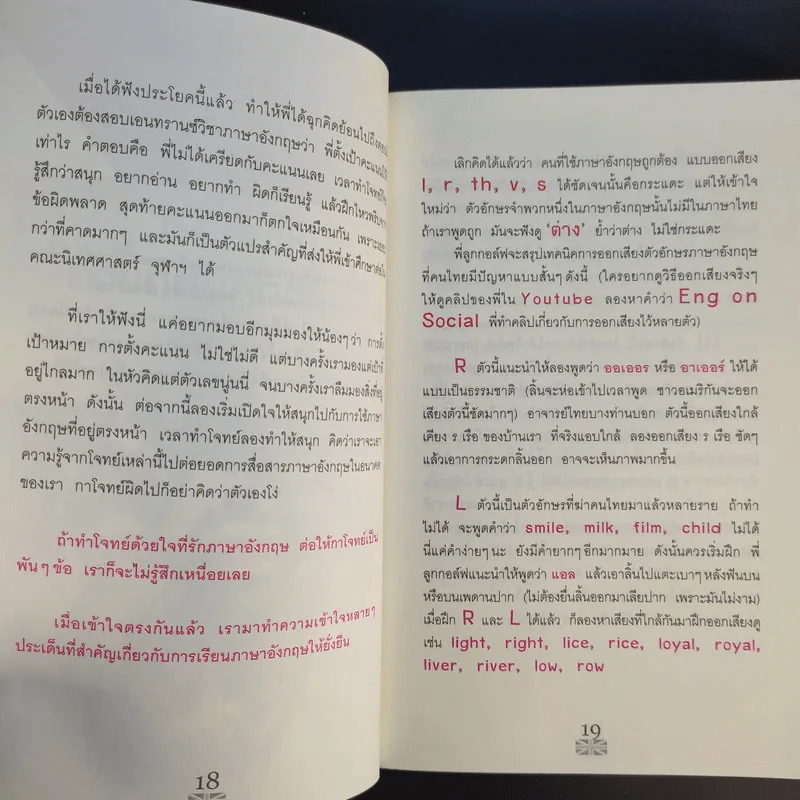 เมื่อได้ฟังประโยคนี้แล้ว ทำให้พี่ได้ฉุกคิดย้อนไปถึง
ตัวเองต้องสอบเอนทรานซ์วิชาภาษาอังกฤษว่า พี่ตั้งเป้าคะแนนไว้
เท่าไร คำตอบคือ พี่ไม่ได้เครียดกับคะแนนเลย เวลาทำโจทย์
รู้สึกว่าสนุก อยากอ่าน อยากทำ ผิดก็เรียนรู้ แล้วฝึกไหวพริบ
ข้อผิดพลาด สุดท้ายคะแนนออกมาก็ตกใจเหมือนกัน เพราะ
กว่าที่คาดมากๆ และมันก็เป็นตัวแปรสำคัญที่ส่งให้พี่เข้าศึกษาต่อ
คณะนิเทศศาสตร์ จุฬาฯ ได้
ที่เราให้ฟังนี่ แค่อยากมอบอีกมุมมองให้น้องๆ ว่า การตั้ง
เป้าหมาย การตั้งคะแนน ไม่ใช่ไม่ดี แต่บางครั้งเรามองแต่เป้าที่
อยู่ไกลมาก ในหัวคิดแต่ตัวเลขนู่นนี่ จนบางครั้งเราลืมมองสิ่งที่อยู่
ตรงหน้า ดังนั้น ต่อจากนี้ลองเริ่มเปิดใจให้สนุกไปกับการใช้ภาษา
อังกฤษที่อยู่ตรงหน้า เวลาทำโจทย์ลองทำให้สนุก คิดว่าเราจะเอา
ความรู้จากโจทย์เหล่านี้ไปต่อยอดการสื่อสารภาษาอังกฤษในอนาคต
ของเรา กาโจทย์ผิดไปก็อย่าคิดว่าตัวเองโง่
ถ้าทำโจทย์ด้วยใจที่รักภาษาอังกฤษ ต่อให้กาโจทย์เป็น
พันๆ ข้อ เราก็จะไม่รู้สึกเหนื่อยเลย
เมื่อเข้าใจตรงกันแล้ว เรามาทำความเข้าใจหลายๆ
ประเด็นที่สำคัญเกี่ยวกับการเรียนภาษาอังกฤษให้ยั่งยืน
18
เลิกคิดได้แล้วว่า คนที่ใช้ภาษาอังกฤษถูกต้อง แบบออกเสียง
l, r, th, v, s ได้ชัดเจนนั้นคือกระแดะ แต่ให้เข้าใจ
ใหม่ว่า ตัวอักษรจำพวกหนึ่งในภาษาอังกฤษนั้นไม่มีในภาษาไทย
ถ้าเราพูดถูก มันจะฟังดู ‘ต่าง’ ย้ำว่าต่าง ไม่ใช่กระแดะ
พี่ลูกกอล์ฟจะสรุปเทคนิคการออกเสียงตัวอักษรภาษาอังกฤษ
ที่คนไทยมีปัญหาแบบสั้นๆ ดังนี้ (ใครอยากดูวิธีออกเสียงจริงๆ
ให้ดูคลิปของพี่ใน Youtube ลองหาคำว่า Eng on
Social พี่ทำคลิปเกี่ยวกับการออกเสียงไว้หลายตัว)
R ตัวนี้แนะนำให้ลองพูดว่า ออเออร หรือ อาเออร์ ให้ได้
แบบเป็นธรรมชาติ (ลิ้นจะห่อเข้าไปเวลาพูด ชาวอเมริกันจะออก
เสียงตัวนี้ชัดมากๆ) อาจารย์ไทยบางท่านบอก ตัวนี้ออกเสียงใกล้
เคียง ร เรือ ของบ้านเรา ที่จริงแอบใกล้ ลองออกเสียง ร เรือ ชัดๆ
แล้วเอาการกระดกลิ้นออก อาจจะเห็นภาพมากขึ้น
L ตัวนี้เป็นตัวอักษรที่ฆ่าคนไทยมาแล้วหลายราย ถ้าทำ
ไม่ได้ จะพูดคำว่า smile, milk, film, child ไม่ได้
นี่แค่คำง่ายๆ นะ ยังมีคำยากๆ อีกมากมาย ดังนั้นควรเริ่มฝึก พี่
ลูกกอล์ฟแนะนำให้พูดว่า แอล แล้วเอาลิ้นไปแตะเบาๆ หลังฟันบน
หรือบนเพดานปาก (ไม่ต้องยื่นลิ้นออกมาเลียปาก เพราะมันไม่งาม)
เมื่อฝึก R และ L ได้แล้ว ก็ลองหาเสียงที่ใกล้กันมาฝึกออกเสียงดู
เช่น light, right, lice, rice, loyal, royal,
liver, river, low, row
19